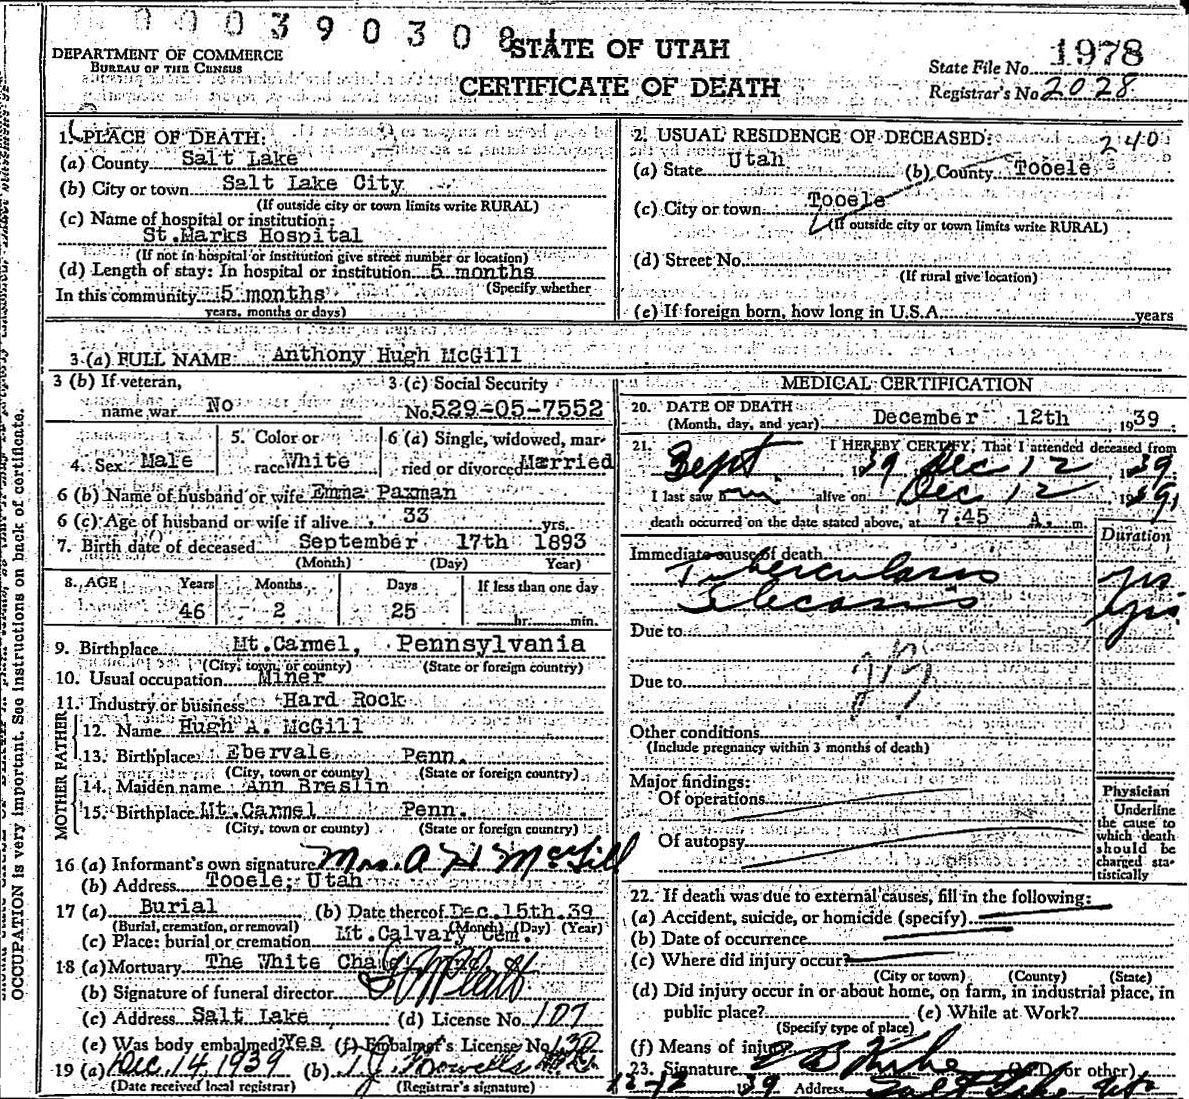 STATE OF UTAH
CERTIFICATE OF DEATH
DEPARTMENT OF COMMERCE
BUREAU OF THE CENSUS
State File No. 1978
Registrar's No. 2028
1. PLACE OF DEATH:
(a) County Salt Lake
(b) City or town Salt Lake City
(If outside city or town limits write RURAL)
(c) Name of hospital or institution:
St.Marks Hospital
(If not in hospital or institution give street number or location)
(d) Length of stay: In hospital or institution 5 months
(Specify whether
In this community 5 months
years, months or days)
2. USUAL RESIDENCE OF DECEASED: 240
(a) State Utah (b) County Tooele
(c) City or town Tooele
(If outside city or town limits write RURAL)
(d) Street No.
(If rural give location)
(e) If foreign born, how long in U.S.A. years
3 (a) FULL NAME: Anthony Hugh McGill
3 (b) If veteran,
name war No
3 (c) Social Security
No. 529-05-7552
4. Sex Male
5. Color or
race White
6 (a) Single, widowed, mar-
ried or divorced Married
6 (b) Name of husband or wife Emma Paxman
6 (c) Age of husband or wife if alive 33 yrs.
7. Birth date of deceased September 17th 1893
(Month) (Day) Year)
8. AGE Years Months Days If less than one day
46 2 25 hr. min.
9. Birthplace Mt.Carmel, Pennsylvania
(City, town, or county) (State or foreign country)
10. Usual occupation Miner
11. Industry or business Hard Rock
FATHER
12. Name Hugh A. McGill
13. Birthplace Ebervale Penn.
(City, town or county) (State or foreign country)
MOTHER
14. Maiden name Ann Breslin
15. Birthplace Mt.Carmel Penn.
(City, town or county) (State or foreign country)
16 (a) Informant's own signature Mrs. A H McGill
(b) Address Tooele, Utah
17 (a) Burial (b) Date thereof Dec.15th.39
(Burial, cremation, or removal) (Month) (Day) (Year)
(c) Place: burial or cremation Mt.Calvary Cem.
18 (a) Mortuary The White
(b) Signature of funeral director
(c) Address Salt Lake (d) License No. 107
(e) Was body embalmed? Yes (f) Embalmer's License No.
19 (a) Dec. 14, 1939 (b)
(Date received local registrar) (Registrar's signature)
MEDICAL CERTIFICATION
20. DATE OF DEATH
(Month, day, and year) December 12th 1939
21. I HEREBY CERTIFY, That I attended deceased from
Sept 1939 Dec 12, 1939
I last saw him alive on Dec 12 1939
death occurred on the date stated above, at 7:45 A. m.
Duration
Immediate cause of death
Tuberculosis
yrs
Due to
Due to
TB
Other conditions
(Include pregnancy within 3 months of death)
Major findings:
Of operations
Of autopsy
Physician
Underline
the cause to
which death
should be
charged sta-
tistically
22. If death was due to external causes, fill in the following:
(a) Accident, suicide, or homicide (specify)
(b) Date of occurrence
(c) Where did injury occur?
(City or town) (County) (State)
(d) Did injury occur in or about home, on farm, in industrial place, in
public place? (e) While at Work?
(Specify type of place)
(f) Means of injury
23. Signature (M.D. or other)
12-12 1939 Address Salt Lake, Ut
OCCUPATION is very important. See instructions on back of certificate.